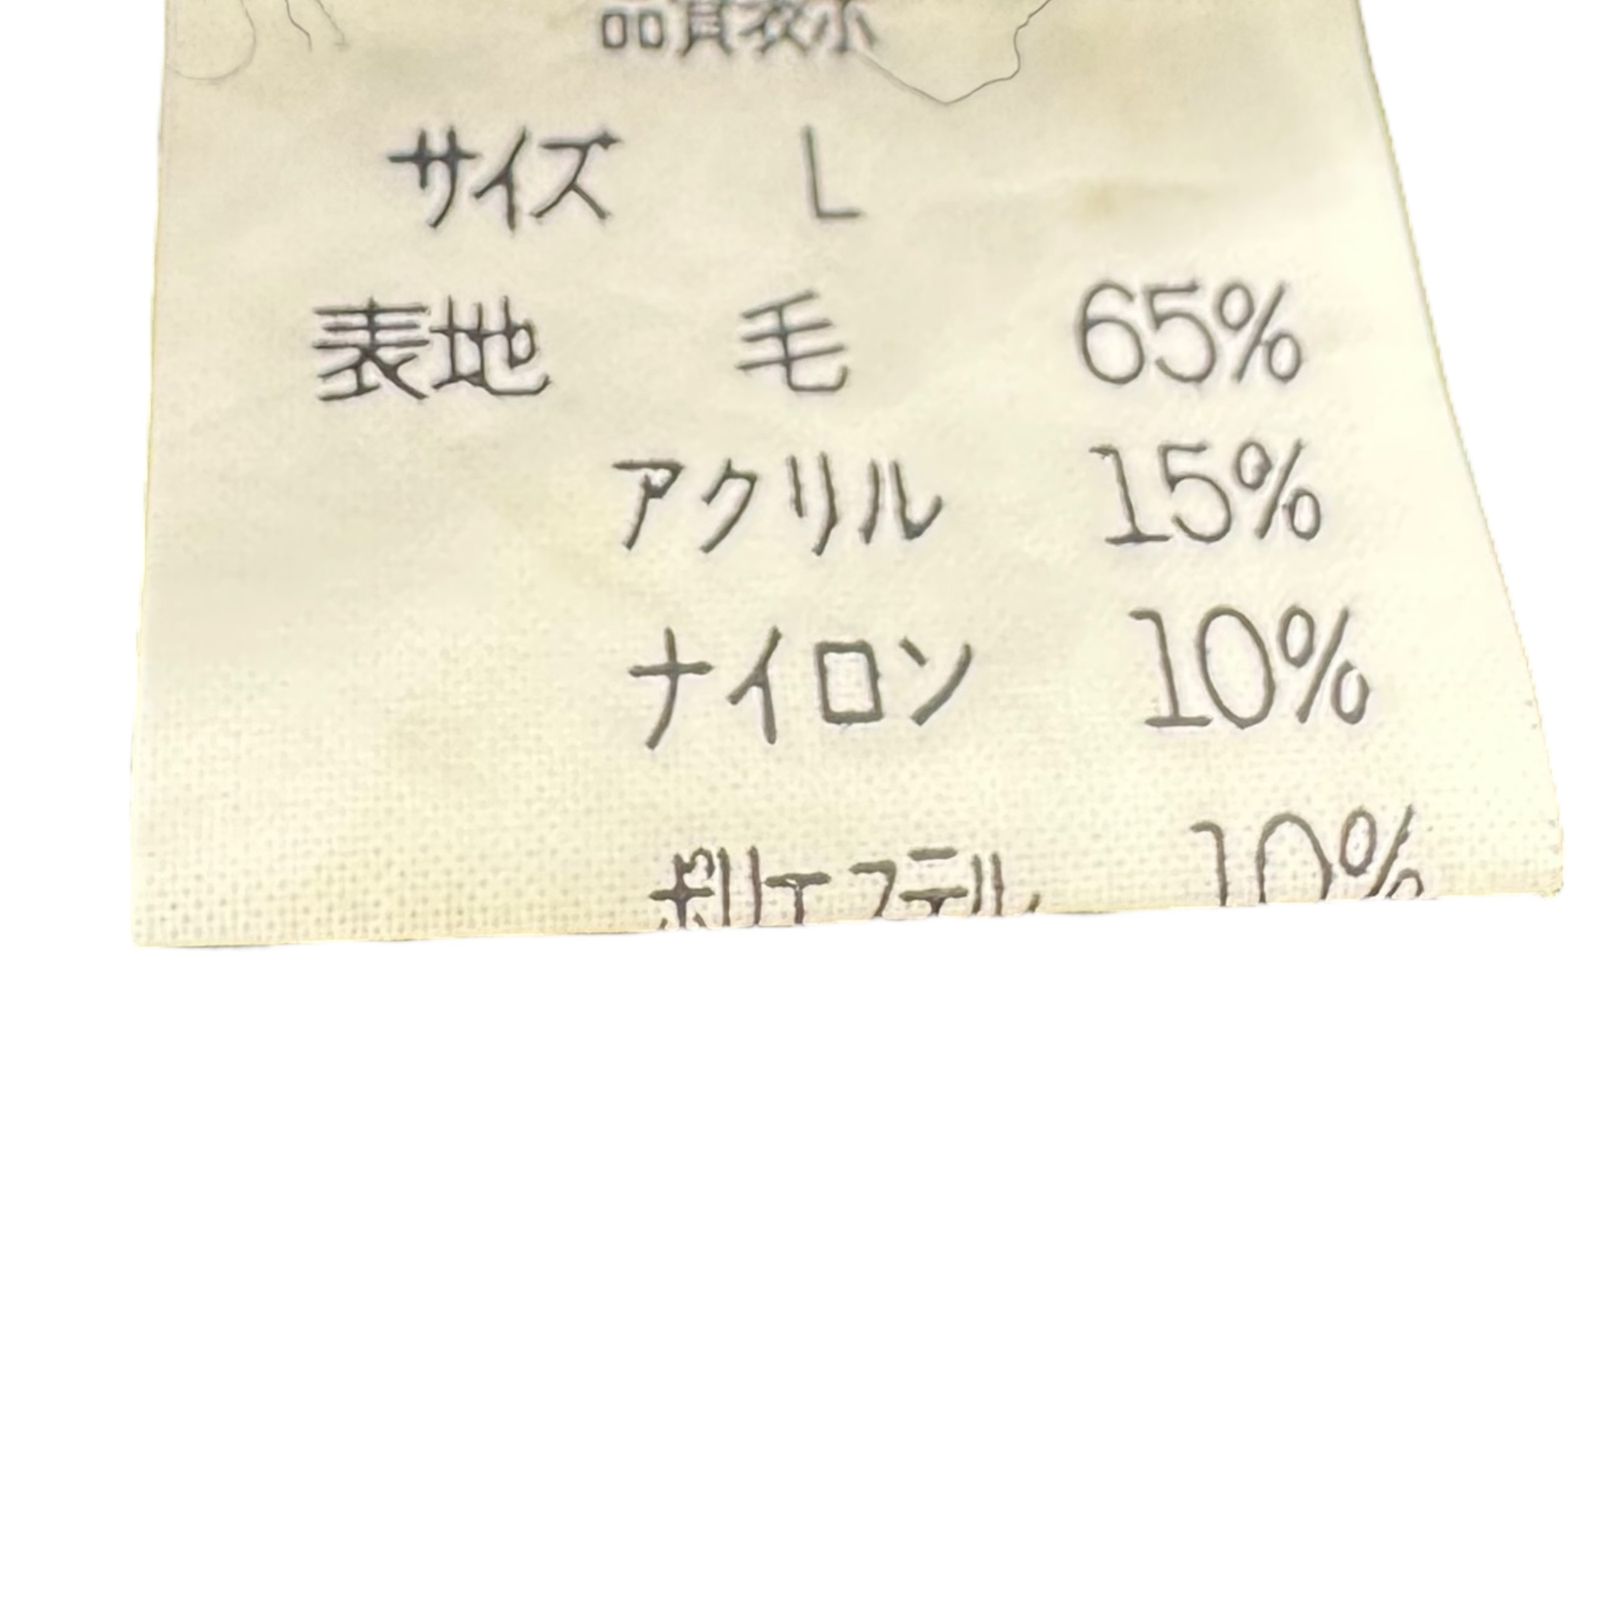 品質表示
サイズ L
表地 毛 65%
アクリル 15%
ナイロン 10%
ポリエステル 10%